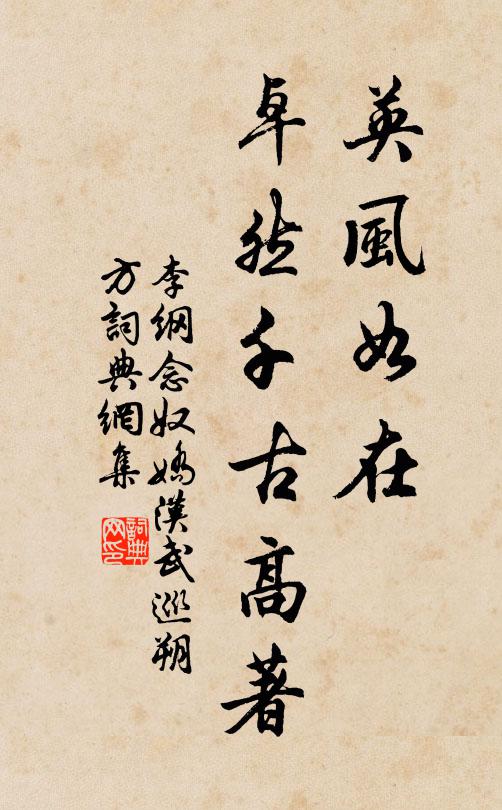 英風如在
卓然千古高著
李綱念奴嬌漢武巡朔
方詞典網集
詞典網印